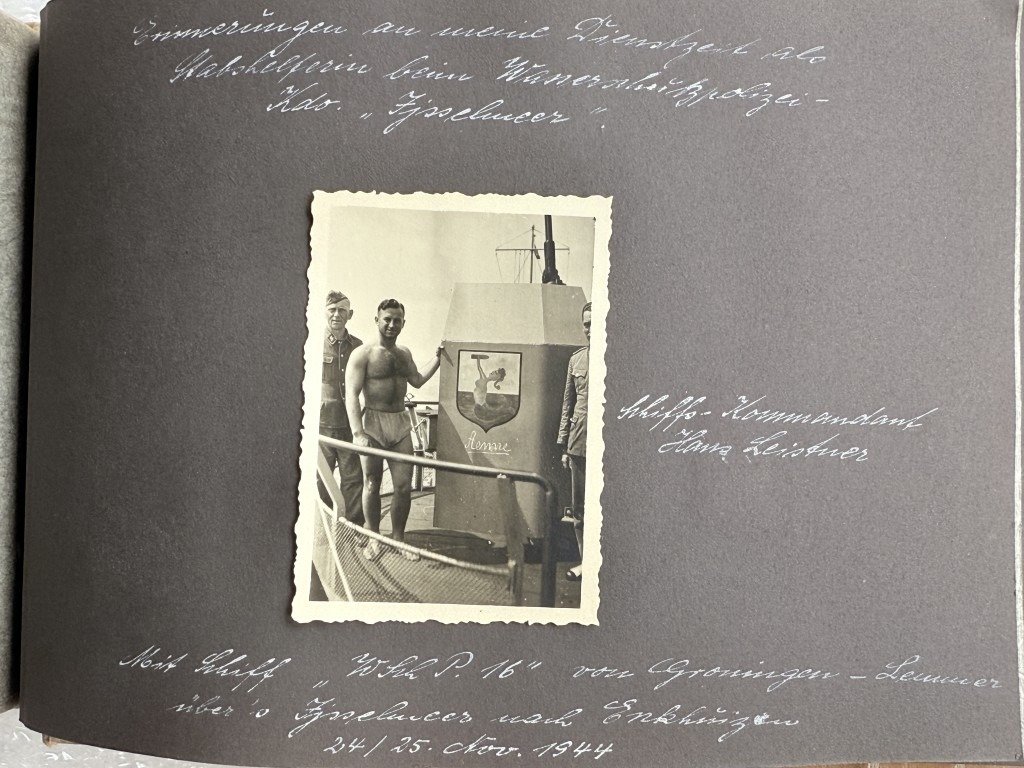 Erinnerungen an meine Dienstzeit als
Stabshelferin beim Wasserschutzpolizei-
Kdo. „Ijsselmeer".
Schiffs-Kommandant
Hans Leistner
Mit Schiff „WSch P. 16" von Groningen - Lemmer
über's Ijsselmeer nach Enkhuizen
24/25. Nov. 1944